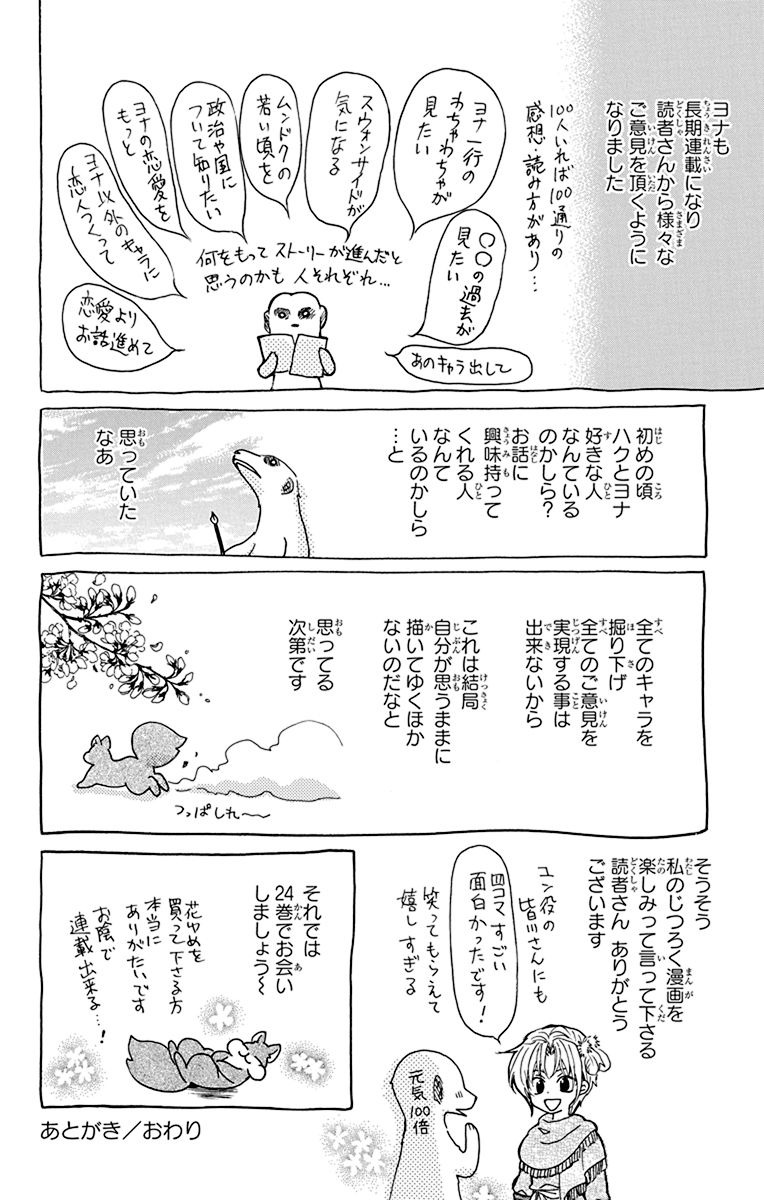 ヨナも
長期連載になり
読者さんから様々な
ご意見を頂くように
なりました
100人いれば100通りの
感想・読み方があり…
ヨナ一行の
わちゃわちゃが
見たい
スウォンサイドが
気になる
ムンドクの
若い頃を
政治や国に
ついて知りたい
ヨナの恋愛を
もっと
ヨナ以外のキャラに
恋人つくって
恋愛より
お話進めて
〇〇の過去が
見たい
あのキャラ出して
何をもってストーリーが進んだと
思うのかも人それぞれ…
初めの頃
ハクとヨナ
好きな人
なんている
のかしら?
お話に
興味持って
くれる人
なんて
いるのかしら
…と
思っていた
なあ
全てのキャラを
掘り下げ
全てのご意見を
実現する事は
出来ないから
これは結局
自分が思うままに
描いてゆくほか
ないのだなと
思ってる
次第です
つっぱしれ〜〜
そうそう
私のじつろく漫画を
楽しみって言って下さる
読者さん ありがとう
ございます
ユン役の
皆川さんにも
四コマすごい
面白かったです!
笑ってもらえて
嬉しすぎる
元気100倍
それでは
24巻でお会い
しましょう〜
花ゆめを
買って下さる方
本当に
ありがたいです
お陰で
連載出来る…!
あとがき/おわり